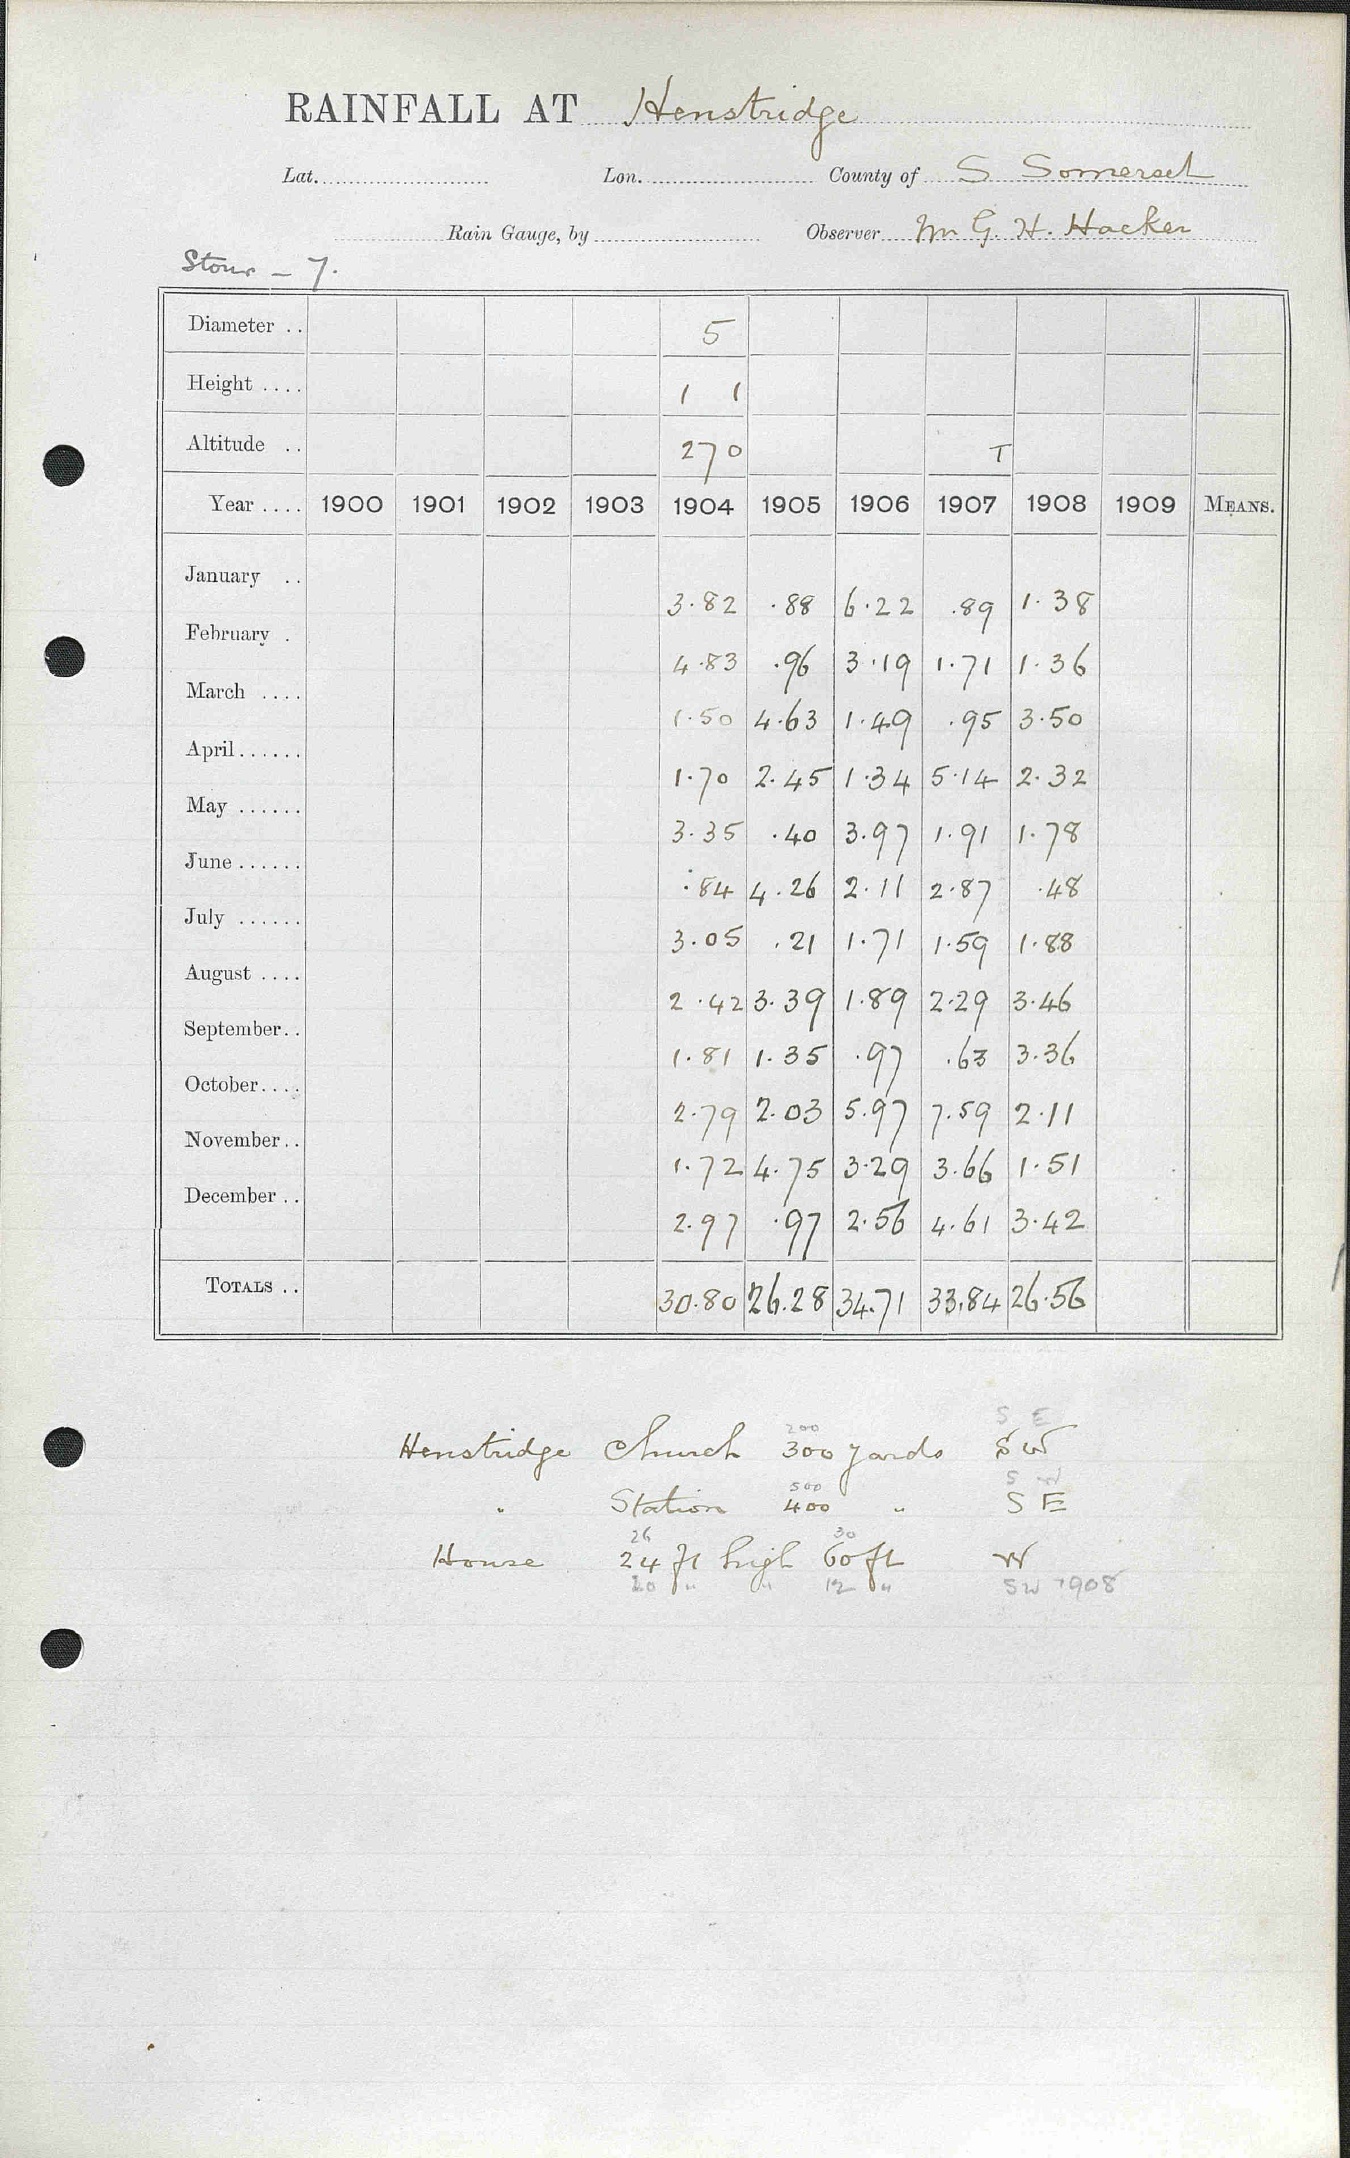 RAINFALL AT Henstridge
Lat. Lon. County of S Somerset
Rain Gauge, by Observer Mr G. H. Hacker
Stour - 7.
Diameter .. 5
Height .... 1 1
Altitude .. 270 T
Year .... 1900 1901 1902 1903 1904 1905 1906 1907 1908 1909 MEANS.
January .. 3.82 .88 6.22 .89 1.38
February . 4.83 .96 3.19 1.71 1.36
March .... 1.50 4.63 1.49 .95 3.50
April...... 1.70 2.45 1.34 5.14 2.32
May ...... 3.35 .40 3.97 1.91 1.78
June ...... .84 4.26 2.11 2.87 .48
July ...... 3.05 .21 1.71 1.59 1.88
August .... 2.42 3.39 1.89 2.29 3.46
September.. 1.81 1.35 .97 .63 3.36
October.... 2.79 2.03 5.97 7.59 2.11
November.. 1.72 4.75 3.29 3.66 1.51
December .. 2.97 .97 2.56 4.61 3.42
TOTALS .. 30.80 26.28 34.71 33.84 26.56
200 S E
Henstridge Church 300 yards SW
500 S W
" Station 400 " S E
26 30
House 24 ft high 60 ft W
20 " " 12 " SW 1908